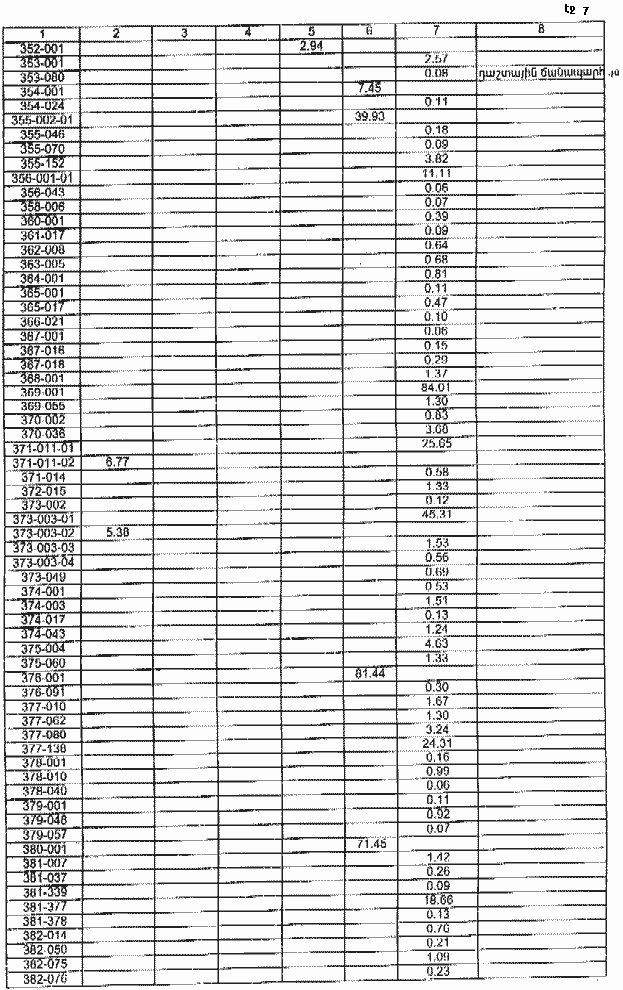 էջ 7
1 2 3 4 5 6 7 8
352-001 2.94
353-001 2.57
353-080 0.08 դաշտային ճանապարհ
354-001 7.45
354-024 0.11
355-002-01 39.93
355-046 0.18
355-070 0.09
355-152 3.82
356-001-01 11.11
356-043 0.06
358-006 0.07
360-001 0.39
361-017 0.09
362-008 0.64
363-005 0.68
364-001 0.81
365-001 0.11
365-017 0.47
366-021 0.10
367-001 0.06
367-016 0.15
367-018 0.29
368-001 1.37
369-001 84.01
369-055 1.30
370-002 0.83
370-036 3.68
371-011-01 25.65
371-011-02 6.77
371-014 0.58
372-015 1.33
373-002 0.12
373-003-01 45.31
373-003-02 5.38
373-003-03 1.53
373-003-04 0.56
373-049 0.69
374-001 0.53
374-003 1.51
374-017 0.13
374-043 1.24
375-004 4.63
375-060 1.33
376-001 81.44
376-091 0.30
377-010 1.67
377-062 1.30
377-080 3.24
377-138 24.31
378-001 0.16
378-010 0.99
378-040 0.06
379-001 0.11
379-048 0.92
379-057 0.07
380-001 71.45
381-007 1.42
381-037 0.26
381-339 0.09
381-377 18.66
381-378 0.13
382-014 0.76
382-050 0.21
382-075 1.09
382-076 0.23